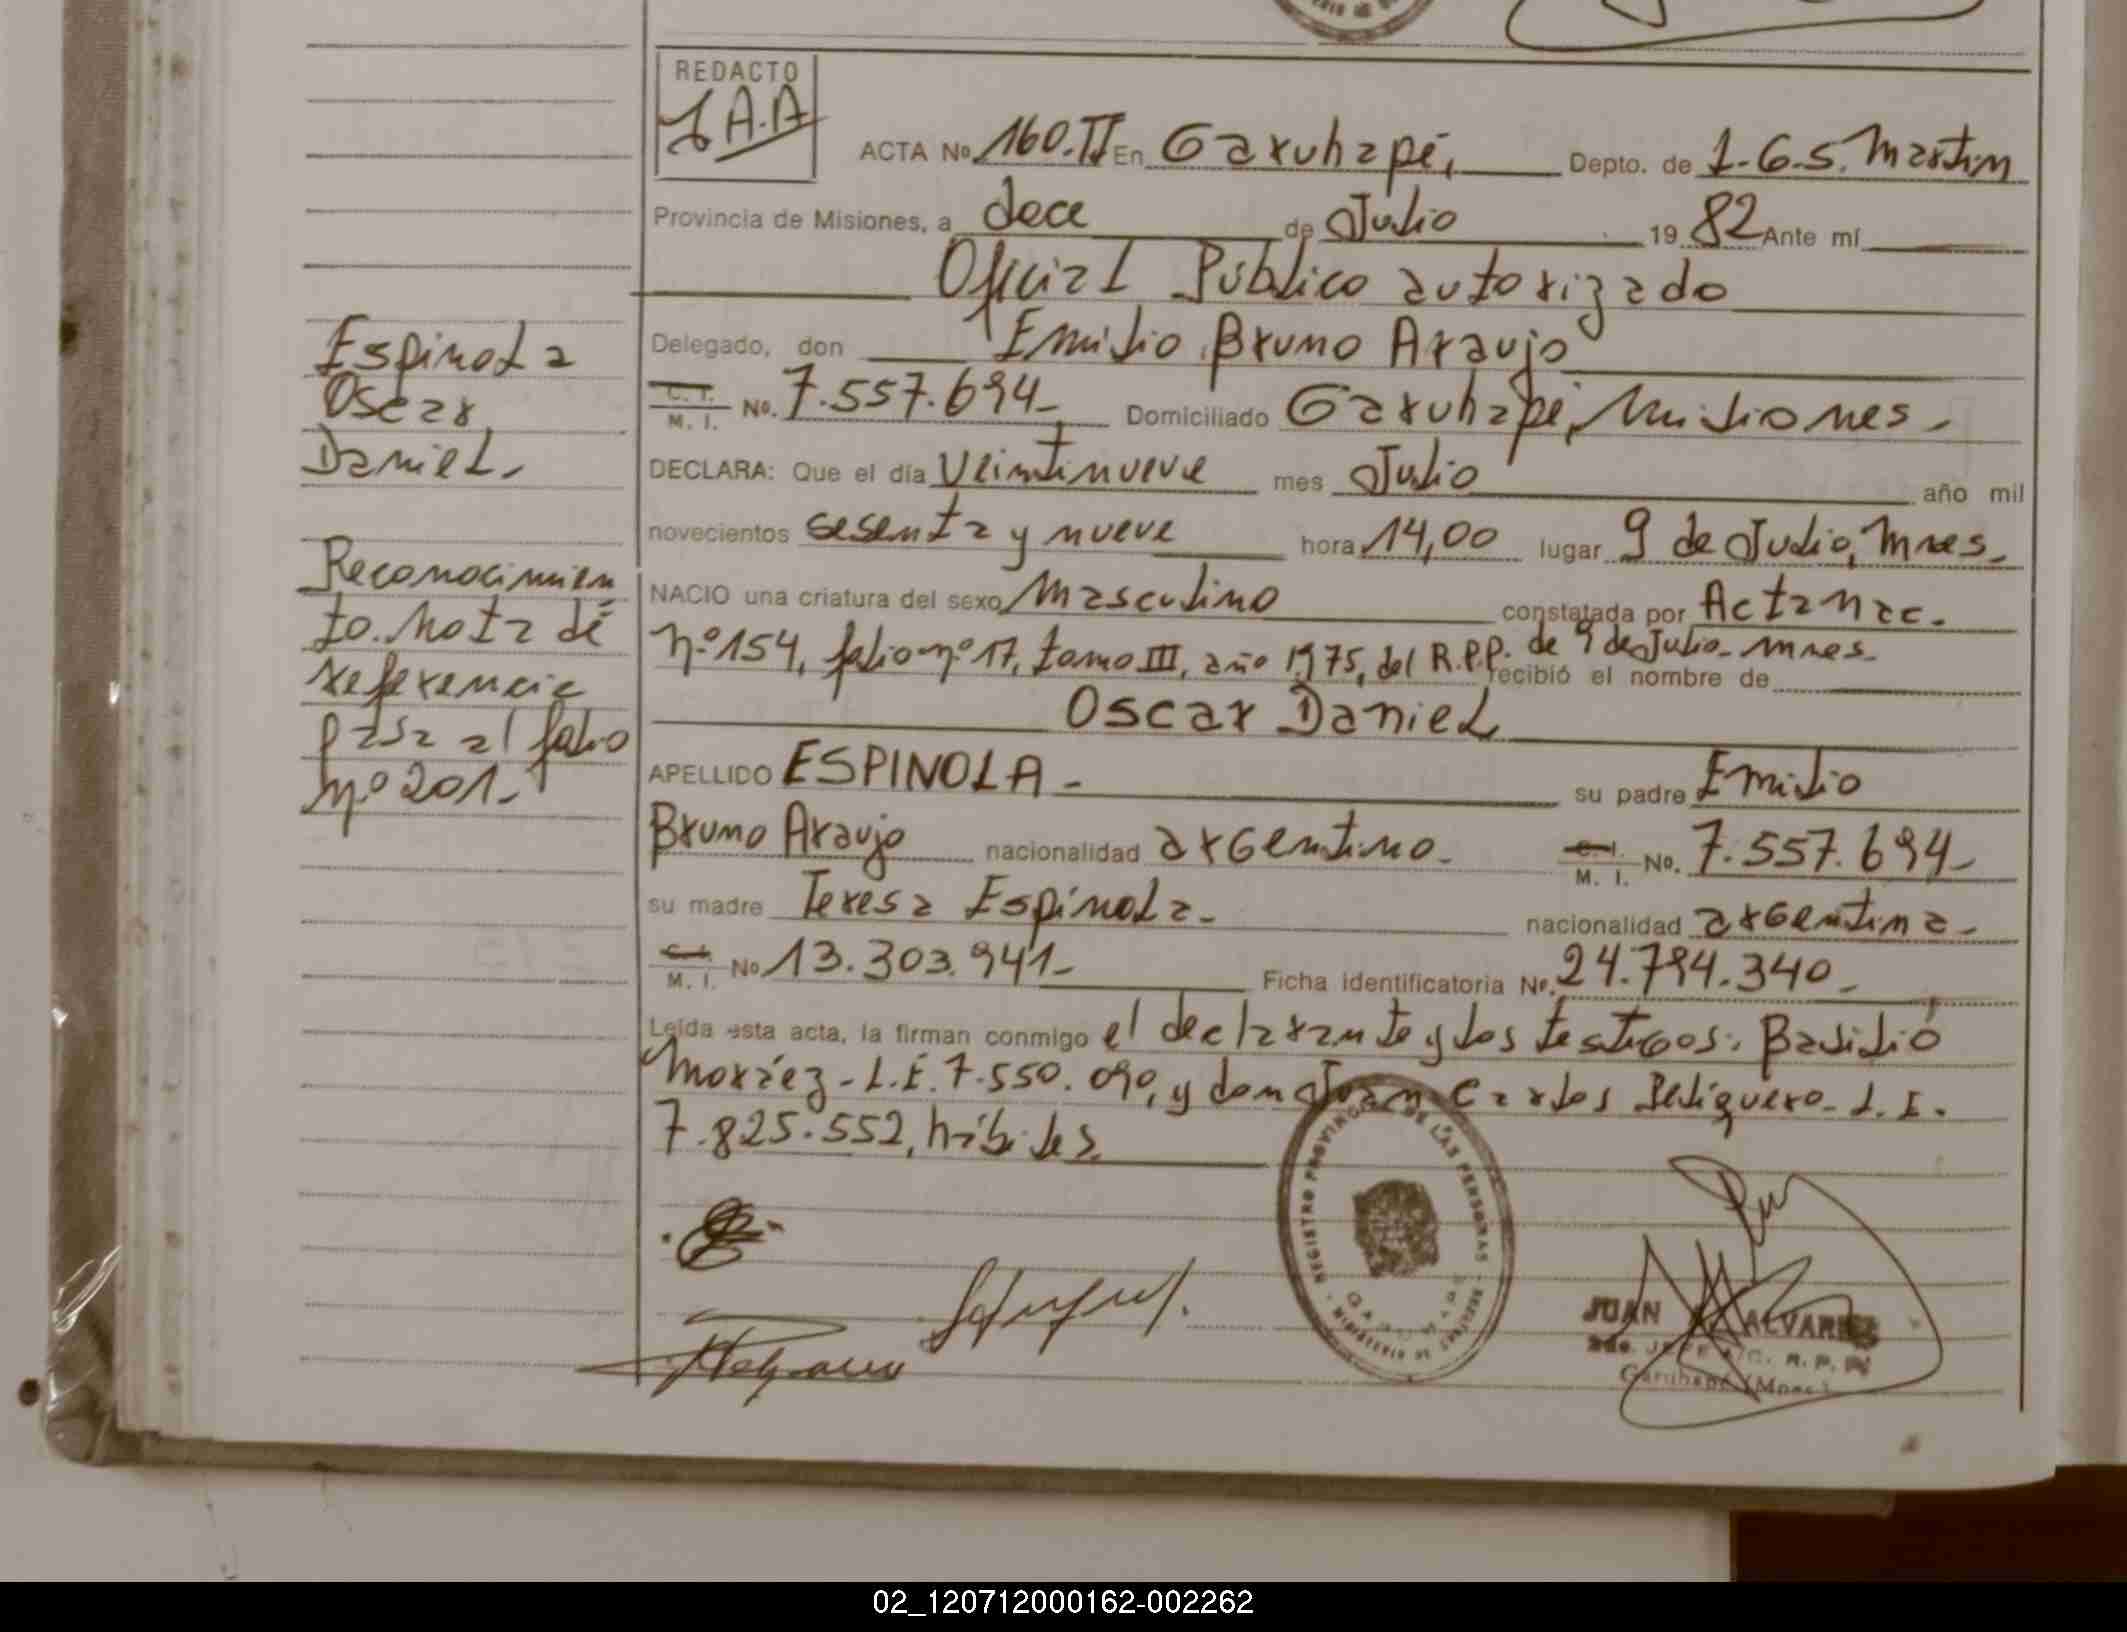 REDACTO
J.A.A
ACTA No 160.II En Garuhapé, Depto. de L.G.S. Martin
Provincia de Misiones, a doce de Julio 1982 Ante mí
Oficial Público autorizado
Delegado, don Emilio Bruno Araujo
C. I. M. I. No. 7.557.694- Domiciliado Garuhapé, Misiones.
DECLARA: Que el día Veintinueve mes Julio año mil
novecientos sesenta y nueve hora 14,00 lugar 9 de Julio, Mnes.
NACIO una criatura del sexo Masculino constatada por Acta nac.
nº 154, folio nº 17, tomo III, año 1975, del R.P.P. de 9 de Julio. Mnes.
recibió el nombre de
Oscar Daniel
APELLIDO ESPINOLA - su padre Emilio
Bruno Araujo nacionalidad argentino. C. I. M. I. No. 7.557.694-
su madre Teresa Espinola. nacionalidad argentina.
C. I. M. I. No 13.303.941- Ficha identificatoria No. 24.794.340-
Leída esta acta, la firman conmigo el declarante y los testigos: Basilio
Moráez - L.E. 7.550.090, y don Juan Carlos L.E.
7.825.552, hábiles.
Espinola
Oscar
Daniel.
Reconocimien
to. Nota de
referencia
pasa al folio
nº 201.
REGISTRO PROVINCIAL DE LAS PERSONAS
MINISTERIO DE
JUAN ALVAREZ
2do. JEFE A/C. R. P. P.
Garuhapé (Mnes.)
02_120712000162-002262